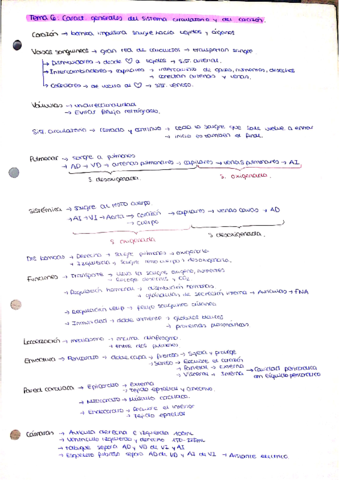 Tema 6: Caract. generales del sistema circulatorio y del corazón
Corazón → bomba impulsora sangre hacia tejidos y órganos
Vasos sanguíneos → gran red de conductos → transportan sangre
→ Distribuidores → desde ♡ a tejidos → sist. arterial.
→ Intercambiadores → capilares → intercambio de agua, nutrientes, desechos
→ conectan arterias y venas.
→ Colectores → de vuelta al ♡ → sist. venoso.
Válvulas → unidireccionalidad
→ Evitar flujo retrógrado.
Sist. circulatorio → cerrado y continuo → toda la sangre que sale vuelve a entrar
→ inicio es también el final.
Pulmonar → sangre a pulmones
→ AD → VD → arterias pulmonares → capilares → venas pulmonares → AI
S. desoxigenada S. oxigenada
Sistémica → sangre al resto cuerpo
→ AI → VI → Aorta → corazón → capilares → venas cavas → AD
→ cuerpo
S. oxigenada S. desoxigenada.
→ Derecho → sangre pulmones → oxigenarla
→ Izquierdo → sangre
Funciones → Transporte → lleva la sangre oxígeno, nutrientes
→ Recoge desechos y CO2
→ Regulación hormonal → distribución hormonas
→ Aurículas → FNA
→ Regulación
→ Inmunidad → glóbulos blancos
→ proteínas plasmáticas
Localización → mediastino → encima diafragma
→ entre los pulmones
Estructura → Pericardio → doble capa → fibroso → sujeta y protege
→ Seroso → Recubre el corazón
→ Parietal → externa
→ Visceral → interna
→ Cavidad pericárdica con líquido pericárdico
Pared cardíaca → Epicardio → externa
→ tejido epitelial y conectivo.
→ Miocardio → músculo cardíaco.
→ Endocardio → Recubre el interior
→ tejido epitelial
Cámaras → Aurícula derecha e izquierda
→ Ventrículo izquierdo y derecho
→ Tabique separa AD y VD de VI y AI
→ Esqueleto fibroso separa AD de VD y AI de VI → Aislante eléctrico.